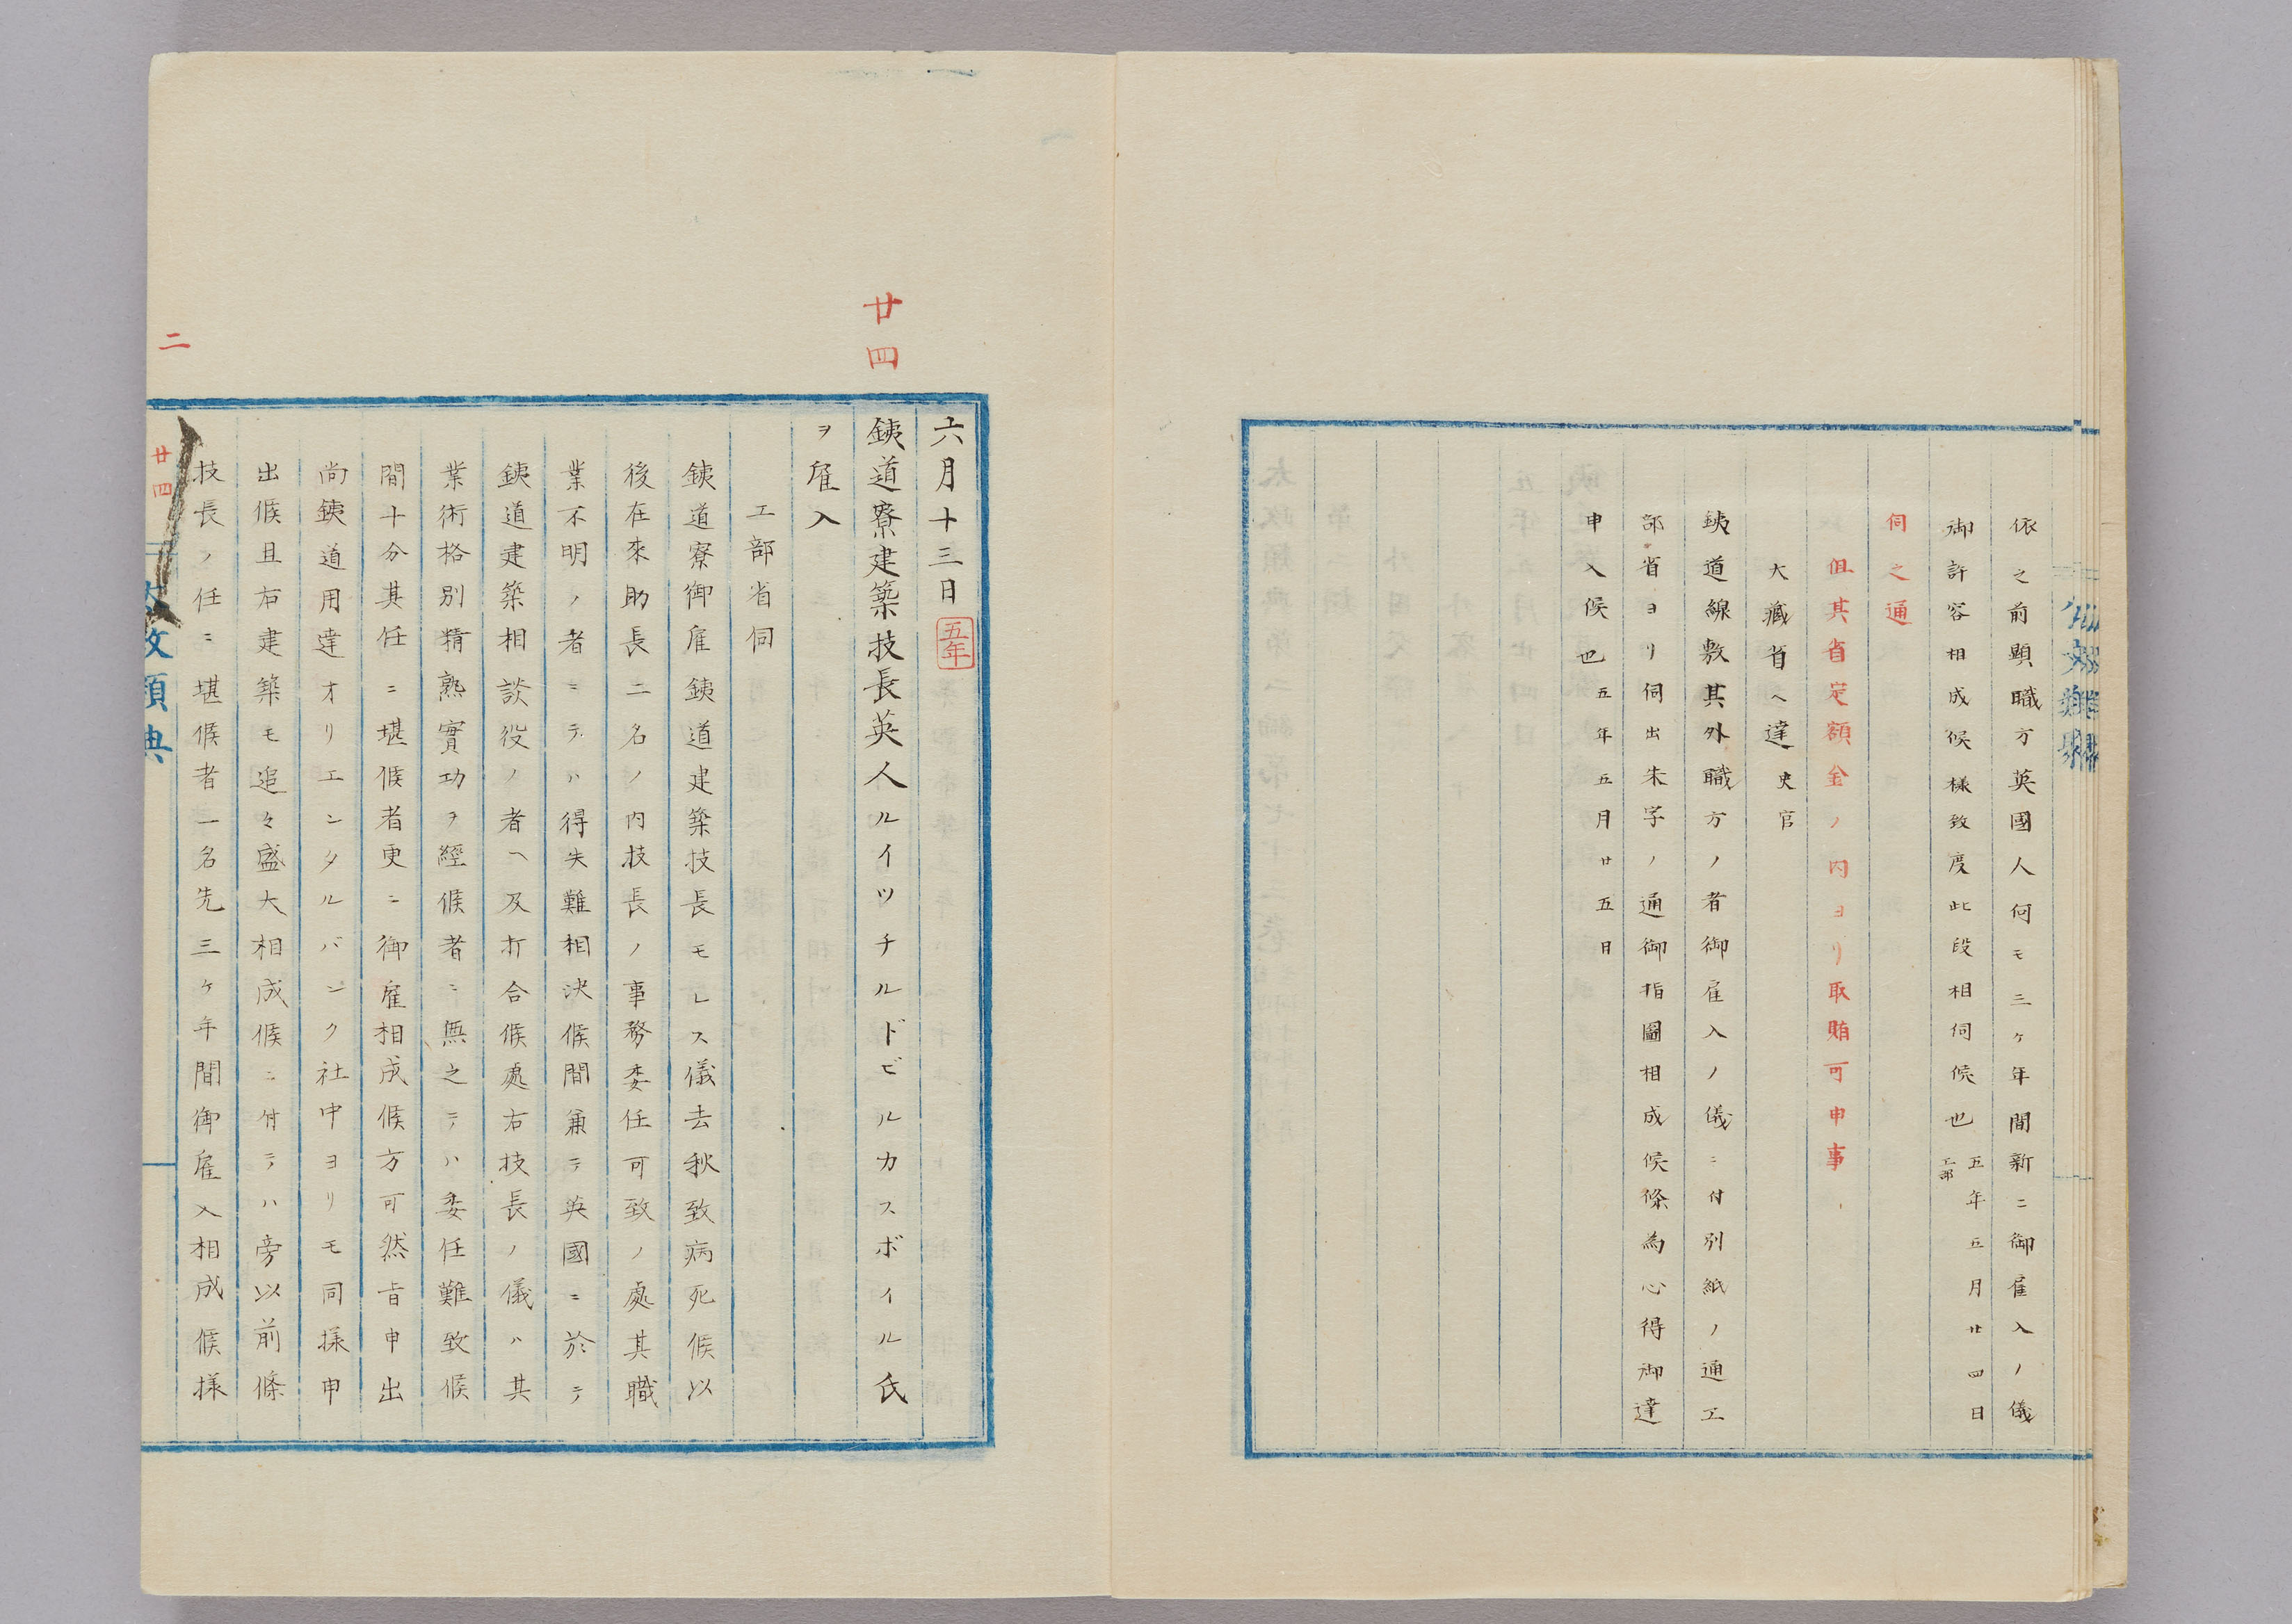 依之前顕職方英國人何モ三ヶ年間新ニ御雇入ノ儀
御許容相成候様致度此段相伺候也 五年五月廿四日 工部
伺之通
但其省定額金ノ内ヨリ取賄可申事
大藏省ヘ達 史官
鉄道線敷其外職方ノ者御雇入ノ儀ニ付別紙ノ通工
部省ヨリ伺出朱字ノ通御指圖相成候條為心得御達
申入候也 五年五月廿五日
六月十三日 五年
廿四
鉄道寮建築技長英人ルイツチルルドビルカスボイル氏
ヲ雇入
工部省伺
鉄道寮御雇鉄道建築技長モレス儀去秋致病死候以
後在來助長二名ノ内技長ノ事務委任可致ノ處其職
業不明ノ者ニテハ得失難相決候間兼テ英國ニ於テ
鉄道建築相談役ノ者ヘ及打合候處右技長ノ儀ハ其
業術格別精熟實功ヲ經候者ニ無之テハ委任難致候
間十分其任ニ堪候者更ニ御雇相成候方可然旨申出
尚鉄道用達オリエンタルバンク社中ヨリモ同様申
出候且右建築モ追々盛大相成候ニ付テハ旁以前條
技長ノ任ニ堪候者一名先三ヶ年間御雇入相成候様
二
廿四
政類典